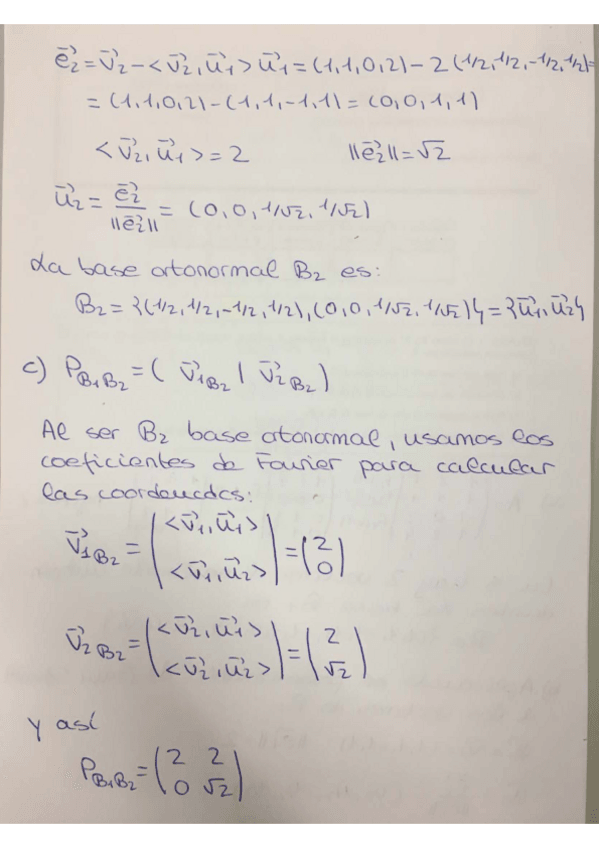 e⃗₂ = v⃗₂ - <v⃗₂, u⃗₁> u⃗₁ = (1,1,0,2) - 2 (1/2, 1/2, -1/2, 1/2) =
= (1,1,0,2) - (1,1,-1,1) = (0,0,1,1)
<v⃗₂, u⃗₁> = 2 ||e⃗₂|| = √2
u⃗₂ = e⃗₂/||e⃗₂|| = (0,0, 1/√2, 1/√2)
La base ortonormal B₂ es:
B₂ = {(1/2, 1/2, -1/2, 1/2), (0,0, 1/√2, 1/√2)} = {u⃗₁, u⃗₂}
c) P_B₁B₂ = ( v⃗₁_B₂ | v⃗₂_B₂ )
Al ser B₂ base ortonormal, usamos los
coeficientes de Fourier para calcular
las coordenadas:
v⃗₁_B₂ = ( <v⃗₁, u⃗₁> ; <v⃗₁, u⃗₂> ) = ( 2 ; 0 )
v⃗₂_B₂ = ( <v⃗₂, u⃗₁> ; <v⃗₂, u⃗₂> ) = ( 2 ; √2 )
y así
P_B₁B₂ = ( 2 2 ; 0 √2 )